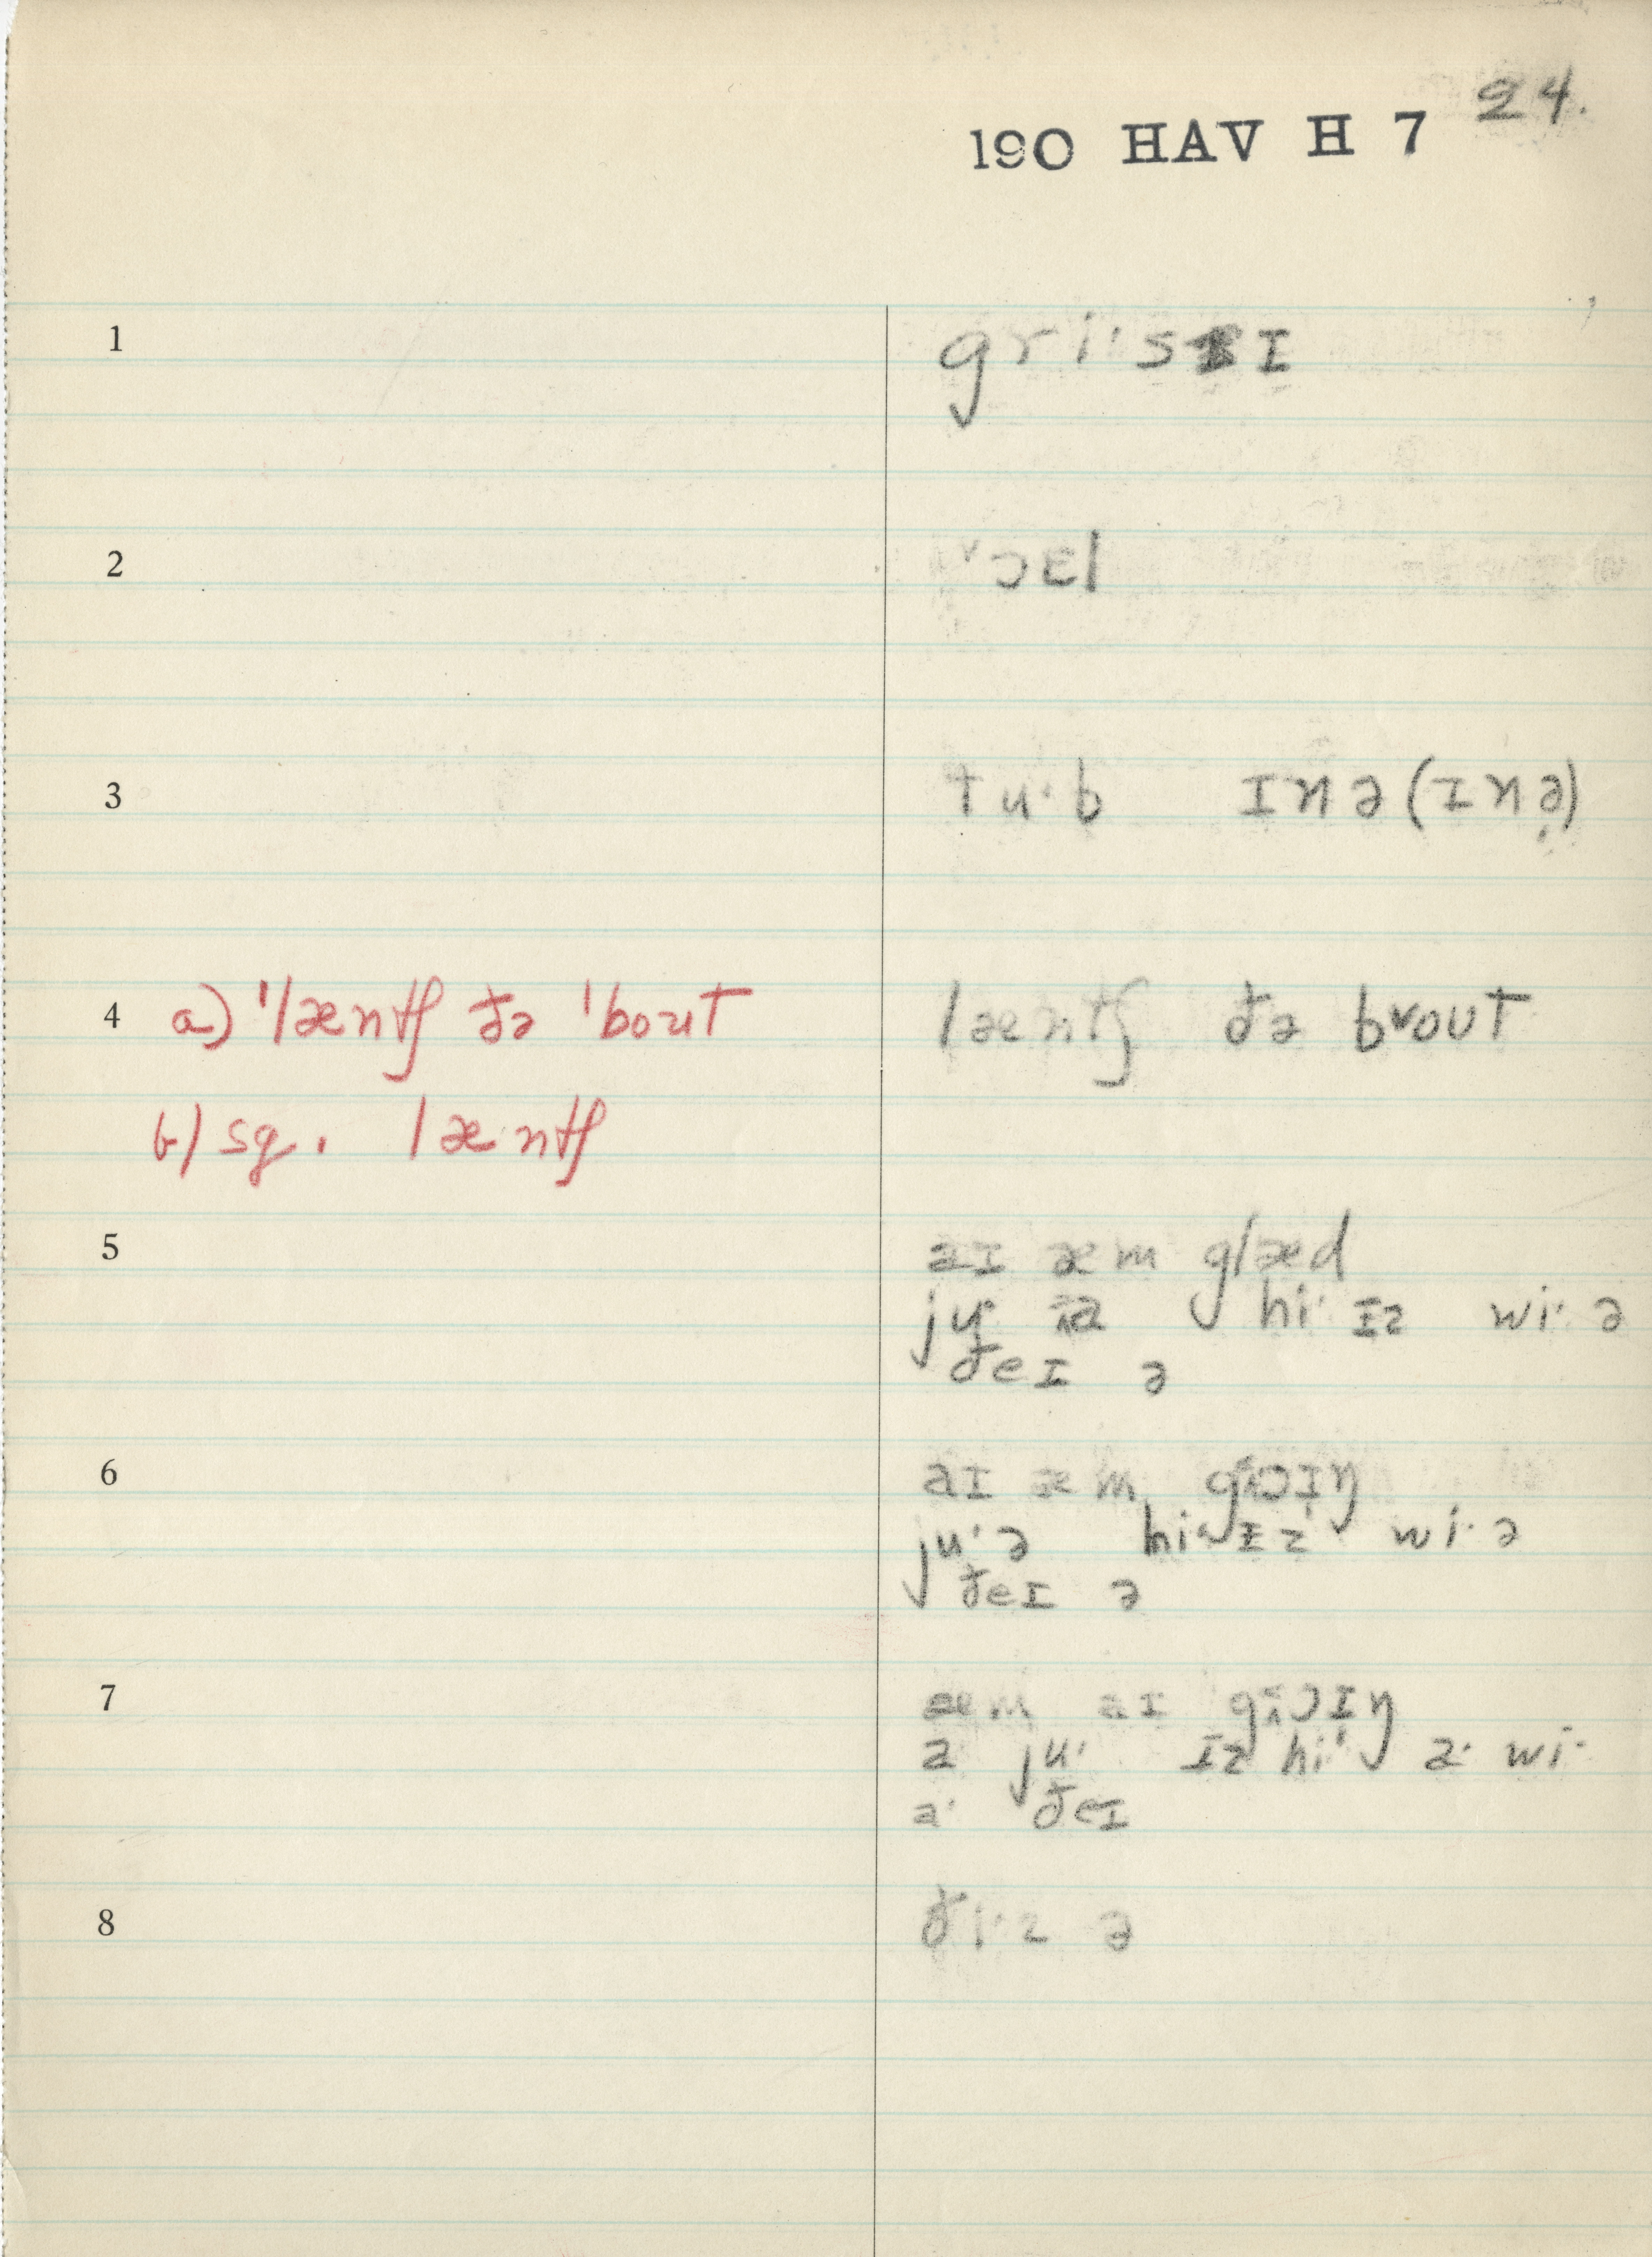 24.
190 HAV H 7
1 gri·sɪ
2 ˅ɔɛl
3 tu·b ɪnə (ɪnə̣)
4 a) 'læntʃ ðə 'bout læntʃ ðə b˅out
b) sg. læntʃ
5 aɪ æm glæd
ju· hi· ɪz wi· ə
ðeɪ ə
6 aɪ æm
ju· ə hi· ɪz wi· ə
ðeɪ ə
7 æm aɪ
a ju· ɪz hi· a· wi·
a· ðeɪ
8 ði·z ə